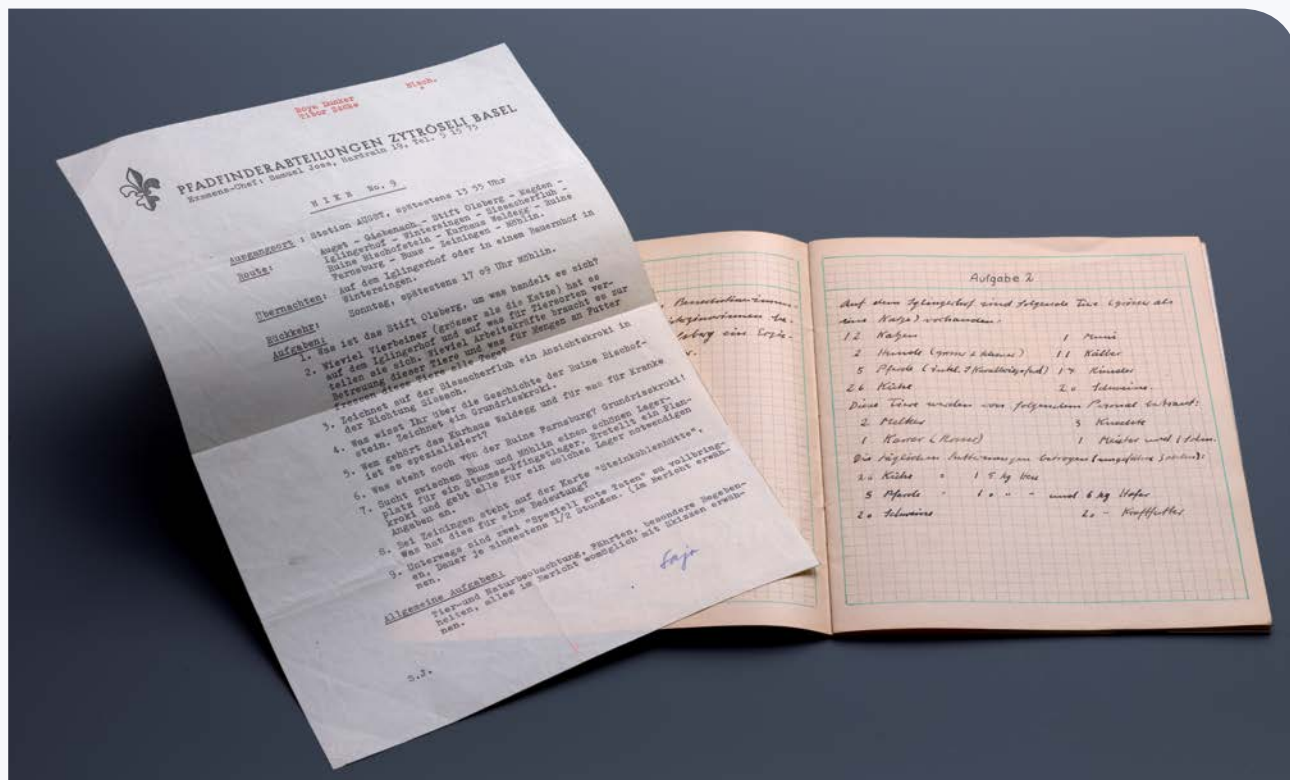 Hisch.
Tibor
PFADFINDERABTEILUNGEN ZYTRÖSELI BASEL
Examens-Chef: Samuel Joss, Hardrain 19, Tel. 5 15 75
H I K E No. 9
Ausgangsort : Station AUGST, spätestens 13 55 Uhr
Route: Augst - Giebenach - Stift Olsberg - Magden -
Iglingerhof - Wintersingen - Sissacherfluh -
Ruine Bischofstein - Kurhaus Waldegg - Ruine
Farnsburg - Buus - Zeiningen - Möhlin.
Übernachten: Auf dem Iglingerhof oder in einem Bauernhof in
Wintersingen.
Rückkehr: Sonntag, spätestens 17 09 Uhr Möhlin.
Aufgaben:
1. Was ist das Stift Olsberg, um was handelt es sich?
2. Wieviel Vierbeiner (grösser als die Katze) hat es
auf dem Iglingerhof und auf was für Tiersorten ver-
teilen sie sich. Wieviel Arbeitskräfte braucht es zur
Betreuung dieser Tiere und was für Mengen an Futter
fressen diese Tiere alle Tage?
3. Zeichnet auf der Sissacherfluh ein Ansichtskroki in
der Richtung Sissach.
4. Was wisst Ihr über die Geschichte der Ruine Bischof-
stein. Zeichnet ein Grundrisskroki.
5. Wem gehört das Kurhaus Waldegg und für was für Kranke
ist es spezialisiert?
6. Was steht noch von der Ruine Farnsburg? Grundrisskroki!
7. Sucht zwischen Buus und Möhlin einen schönen Lager-
platz für ein Stammes-Pfingstlager. Erstellt ein Plan-
kroki und gebt alle für ein solches Lager notwendigen
Angaben an.
8. Bei Zeiningen steht auf der Karte "Steinkohlenhütte",
Was hat dies für eine Bedeutung?
9. Unterwegs sind zwei "Speziell gute Taten" zu vollbring-
en, Dauer je mindestens 1/2 Stunden. (im Bericht erwäh-
nen.
Allgemeine Aufgaben:
Tier-und Naturbeobachtung, Fährten, besondere Begeben-
heiten, alles im Bericht womöglich mit Skizzen erwäh-
nen.
S.J.
ein Erzie-
Aufgabe 2
Auf dem Iglingerhof sind folgende Tiere (grösser als
eine Katze) vorhanden:
12 Katzen 1 Muni
2 Hunde 11 Kälber
5 Pferde 17 Rinder
26 Kühe 20 Schweine.
Diese Tiere werden von folgendem Personal betreut:
2 Melker 3 Knechte
1 Karrer 1 Meister und 1 Sohn.
Die täglichen Futtermengen betragen (ungefähre Zahlen):
26 Kühe " 15 kg Heu
5 Pferde " 10 " " und 6 kg Hafer
20 Schweine 20 " Kraftfutter